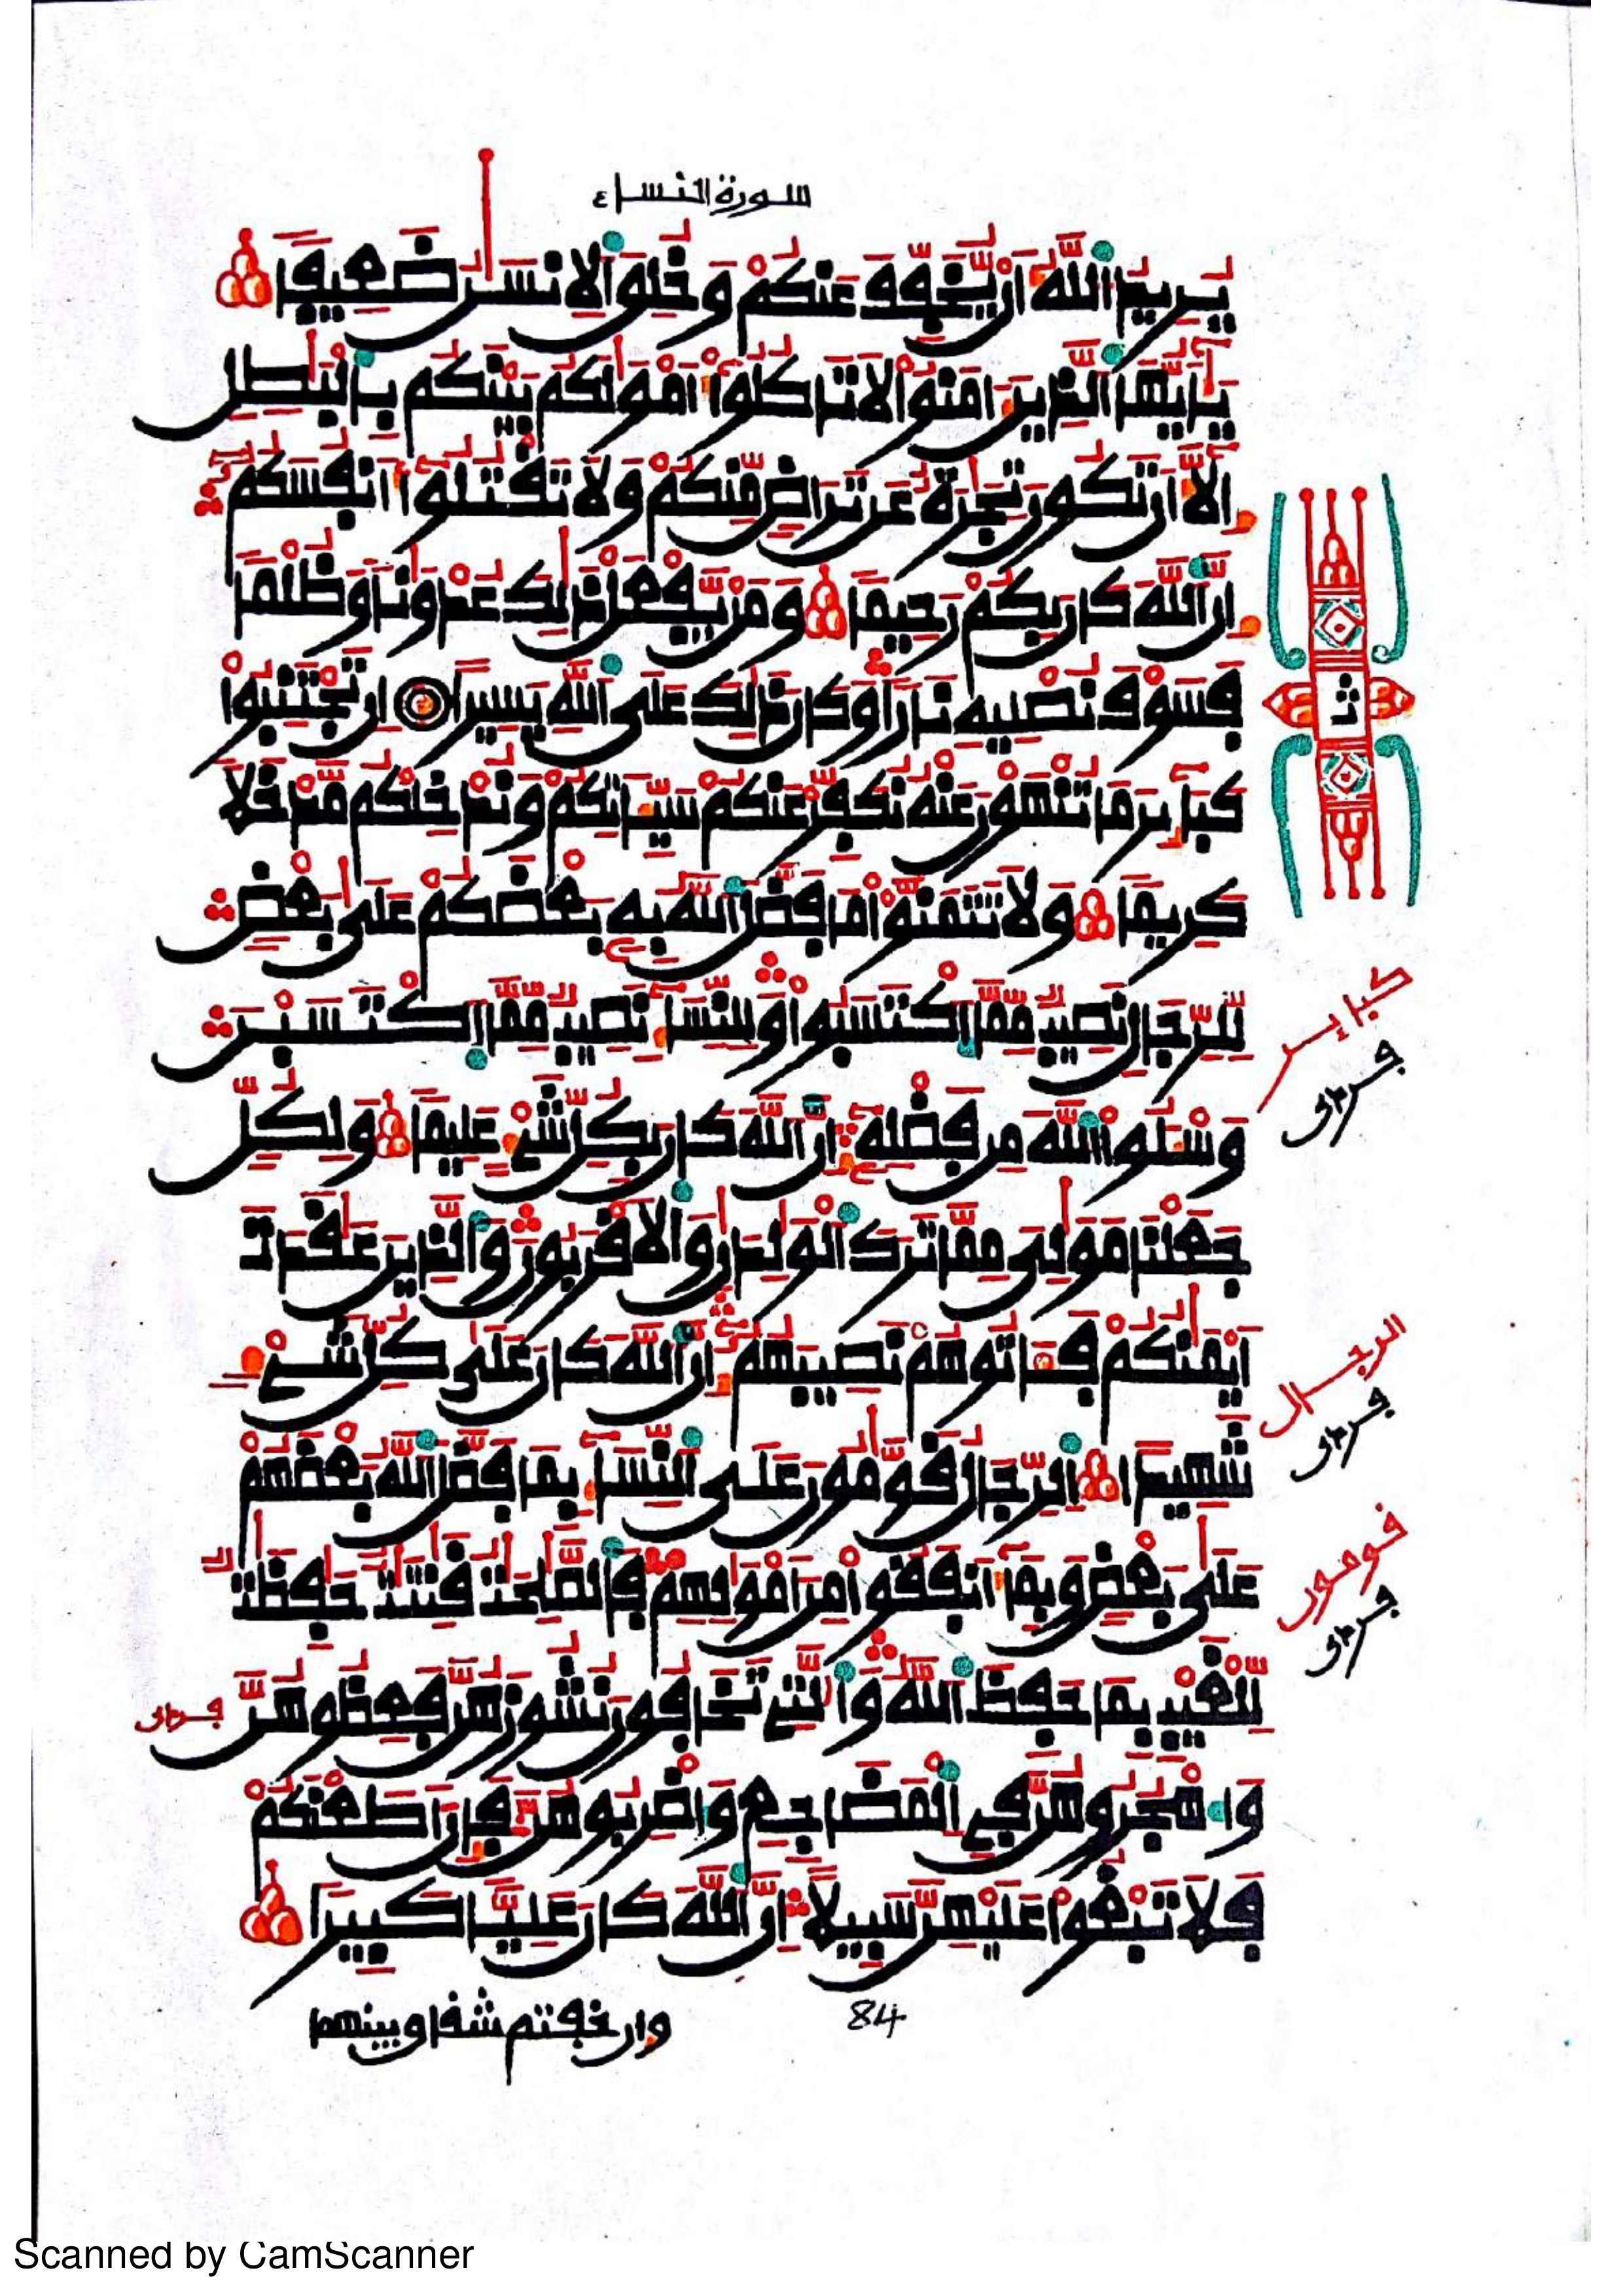 سورة النساء ٤
يريد الله أن يخفف عنكم وخلق الانسن ضعيفا
يأيها الذين ءامنوا لا تاكلوا أمولكم بينكم بالبطل
الا أن تكون تجرة عن تراض منكم ولا تقتلوا أنفسكم
ان الله كان بكم رحيما ومن يفعل ذلك عدونا وظلما
فسوف نصليه نارا وكان ذلك على الله يسيرا ان تجتنبوا
كبائر ما تنهون عنه نكفر عنكم سيئاتكم وندخلكم مدخلا
كريما ولا تتمنوا ما فضل الله به بعضكم على بعض
للرجال نصيب مما اكتسبوا وللنساء نصيب مما اكتسبن
وسئلوا الله من فضله ان الله كان بكل شيء عليما ولكل
جعلنا مولي مما ترك الولدن والاقربون والذين عقدت
أيمنكم فئاتوهم نصيبهم ان الله كان على كل شيء
شهيدا الرجال قومون على النساء بما فضل الله بعضهم
على بعض وبما أنفقوا من أمولهم فالصلحت قنتت حفظت
للغيب بما حفظ الله والتي تخافون نشوزهن فعظوهن
واهجروهن في المضاجع واضربوهن فان أطعنكم
فلا تبغوا عليهن سبيلا ان الله كان عليا كبيرا
وان خفتم شقاق بينهما
84
ثمن
كباير
الرجال
قومون
Scanned by CamScanner